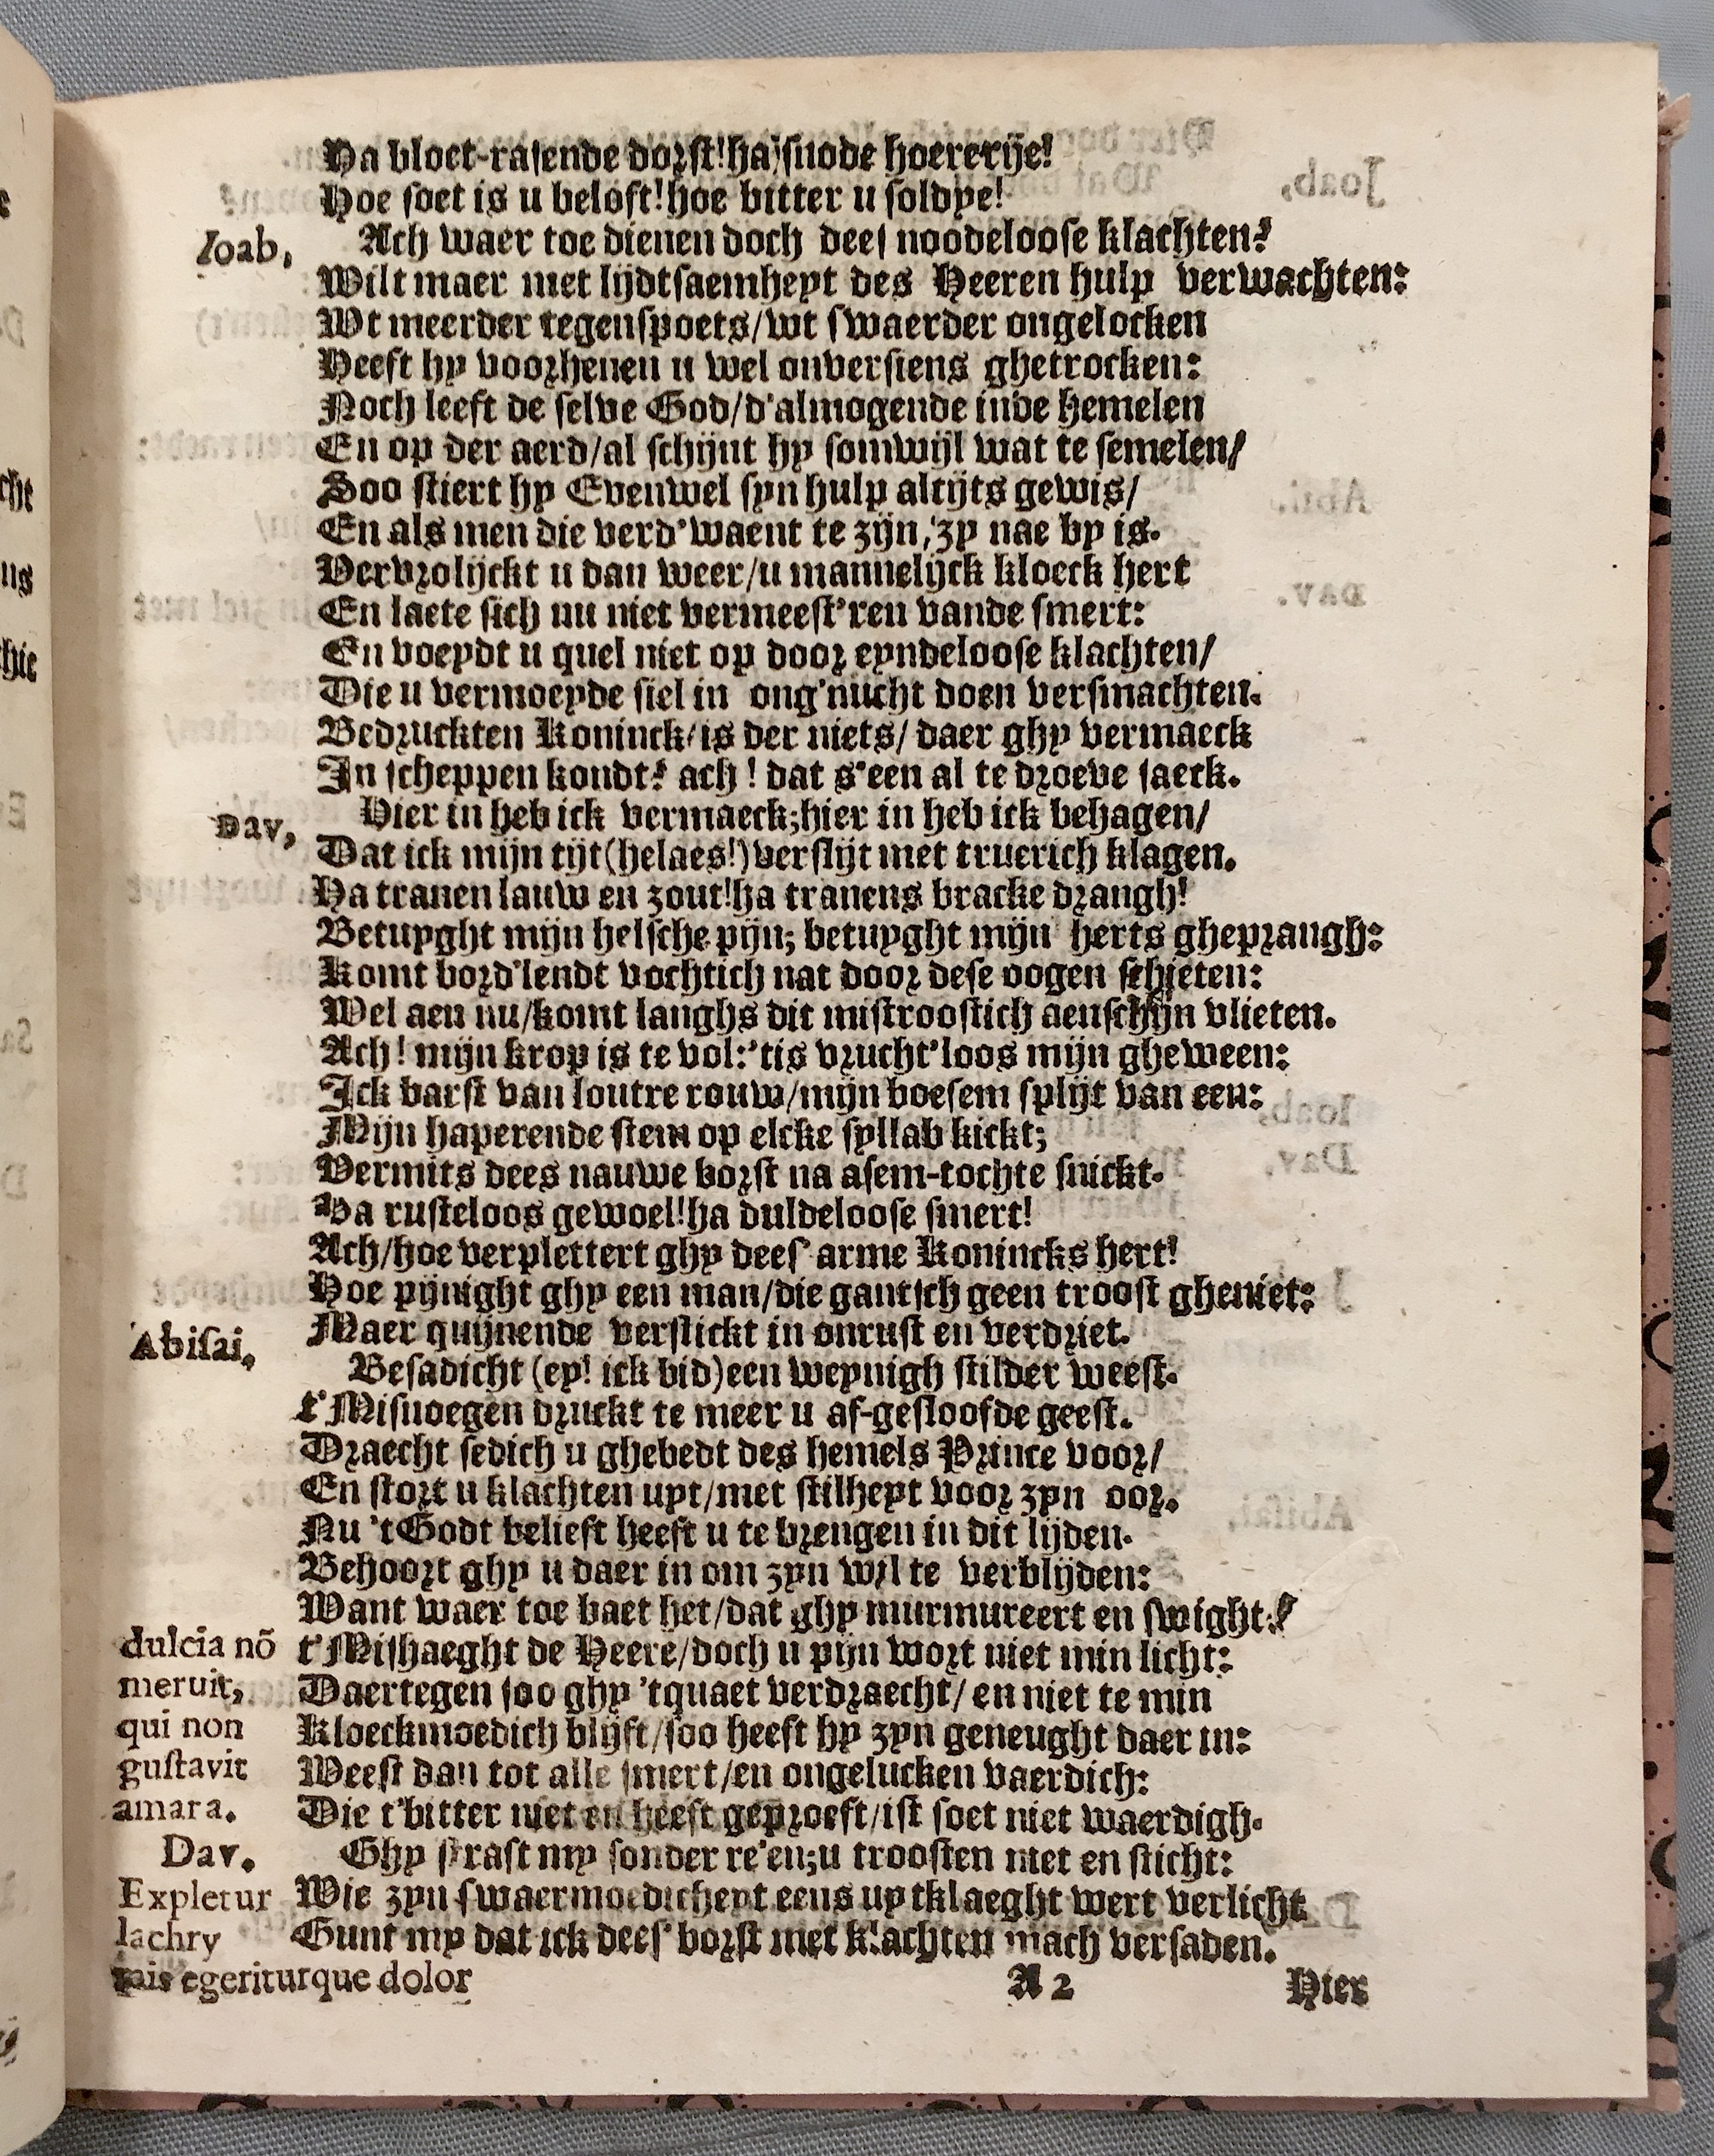 Ha bloet-rasende dorst! ha snode hoererije!
Hoe soet is u beloft! hoe bitter u soldye!
Ioab, Ach waer toe dienen doch dees noodeloose klachten?
Wilt maer met lijdtsaemheyt des Heeren hulp verwachten:
Wt meerder tegenspoets/wt swaerder ongelocken
Heeft hy voorhenen u wel onversiens ghetrocken:
Noch leeft de selve God/d'almogende inde hemelen
En op der aerd/al schijnt hy somwijl wat te semelen/
Soo stiert hy Evenwel syn hulp altijts gewis/
En als men die verd'waent te zijn, zy nae by is.
Vervrolijckt u dan weer/u mannelijck kloeck hert
En laete sich nu niet vermeest'ren vande smert:
En voeydt u quel niet op door eyndeloose klachten/
Die u vermoeyde siel in ong'nucht doen versmachten.
Bedruckten Koninck/is der niets/ daer ghy vermaeck
In scheppen kondt? ach! dat s'een al te droeve saeck.
Dav, Hier in heb ick vermaeck; hier in heb ick behagen/
Dat ick mijn tijt (helaes!) verslijt met truerich klagen.
Ha tranen lauw en zout! ha tranens bracke drangh!
Betuyght mijn helsche pijn; betuyght mijn herts gheprangh:
Komt bord'lendt vochtich nat door dese oogen schieten:
Wel aen nu/komt langhs dit mistroostich aenschijn vlieten.
Ach! mijn krop is te vol: 'tis vrucht'loos mijn gheween:
Ick barst van loutre rouw/mijn boesem splijt van een:
Mijn haperende stem op elcke syllab kickt;
Vermits dees nauwe borst na asem-tochte snickt.
Ha rusteloos gewoel! ha duldeloose smert!
Ach/hoe verplettert ghy dees' arme Konincks hert!
Hoe pijnight ghy een man/die gantsch geen troost gheniet:
Maer quijnende verstickt in onrust en verdriet.
Abisai, Besadicht (ey! ick bid) een weynigh stilder weest.
t'Misnoegen druckt te meer u af-gesloofde geest.
Draecht sedich u ghebedt des hemels Prince voor/
En stort u klachten uyt/met stilheyt voor zyn oor.
Nu 't Godt belieft heeft u te brengen in dit lijden.
Behoort ghy u daer in om zyn wil te verblijden:
Want waer toe baet het/dat ghy murmureert en swight?
dulcia nō t'Mishaeght de Heere/doch u pijn wort niet min licht:
meruit, Daertegen soo ghy 'tquaet verdraecht/ en niet te min
qui non Kloeckmoedich blijft/soo heeft hy zyn geneught daer in:
gustavit Weest dan tot alle smert/en ongelucken vaerdich:
amara. Die t'bitter niet en heeft geproeft/ist soet niet waerdigh.
Dav. Ghy straft my sonder re'en; u troosten niet en sticht:
Expletur Wie zyn swaermoedicheyt eens uytklaeght wert verlicht
lachry Gunt my dat ick dees' borst met klachten mach versaden.
mis egeriturque dolor A 2 Hier